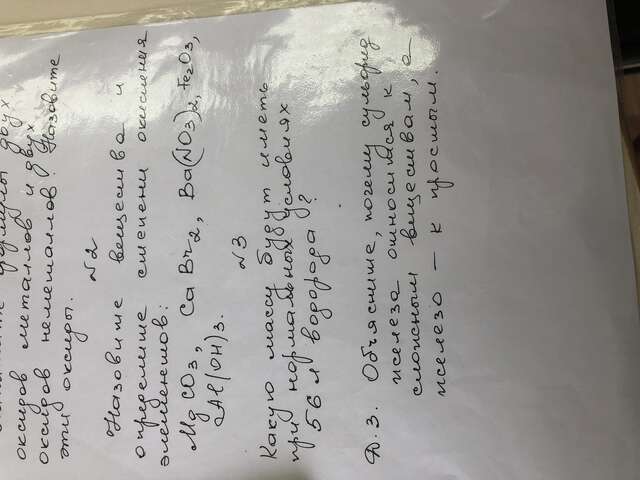 формулы двух
оксидов металлов и двух
оксидов неметаллов. Назовите
эти оксиды.
№2
Назовите вещества и
определите степени окисления
элементов:
MgCO3, CaBr2, Ba(NO3)2, Fe2O3,
Al(OH)3.
№3
Какую массу будут иметь
при нормальных условиях
56 л водорода?
Д.З. Объясните, почему сульфид
железа относится к
сложным веществам, а
железо — к простым.